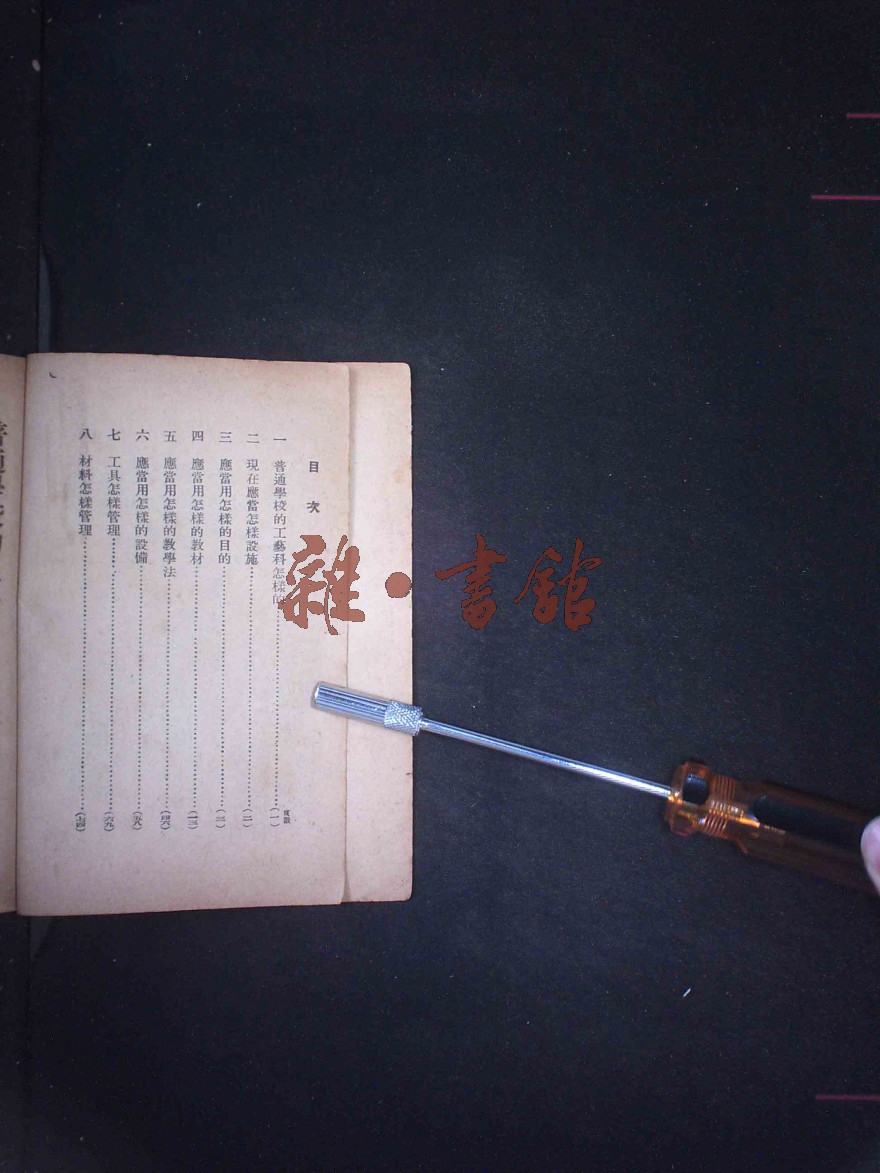 目次
頁數
一 普通學校的工藝科怎樣的………(一)
二 現在應當怎樣設施………(二)
三 應當用怎樣的目的………(三)
四 應當用怎樣的教材………(一三)
五 應當用怎樣的教學法………(四六)
六 應當用怎樣的設備………(五九)
七 工具怎樣管理………(六九)
八 材料怎樣管理………(七四)
雜·書館